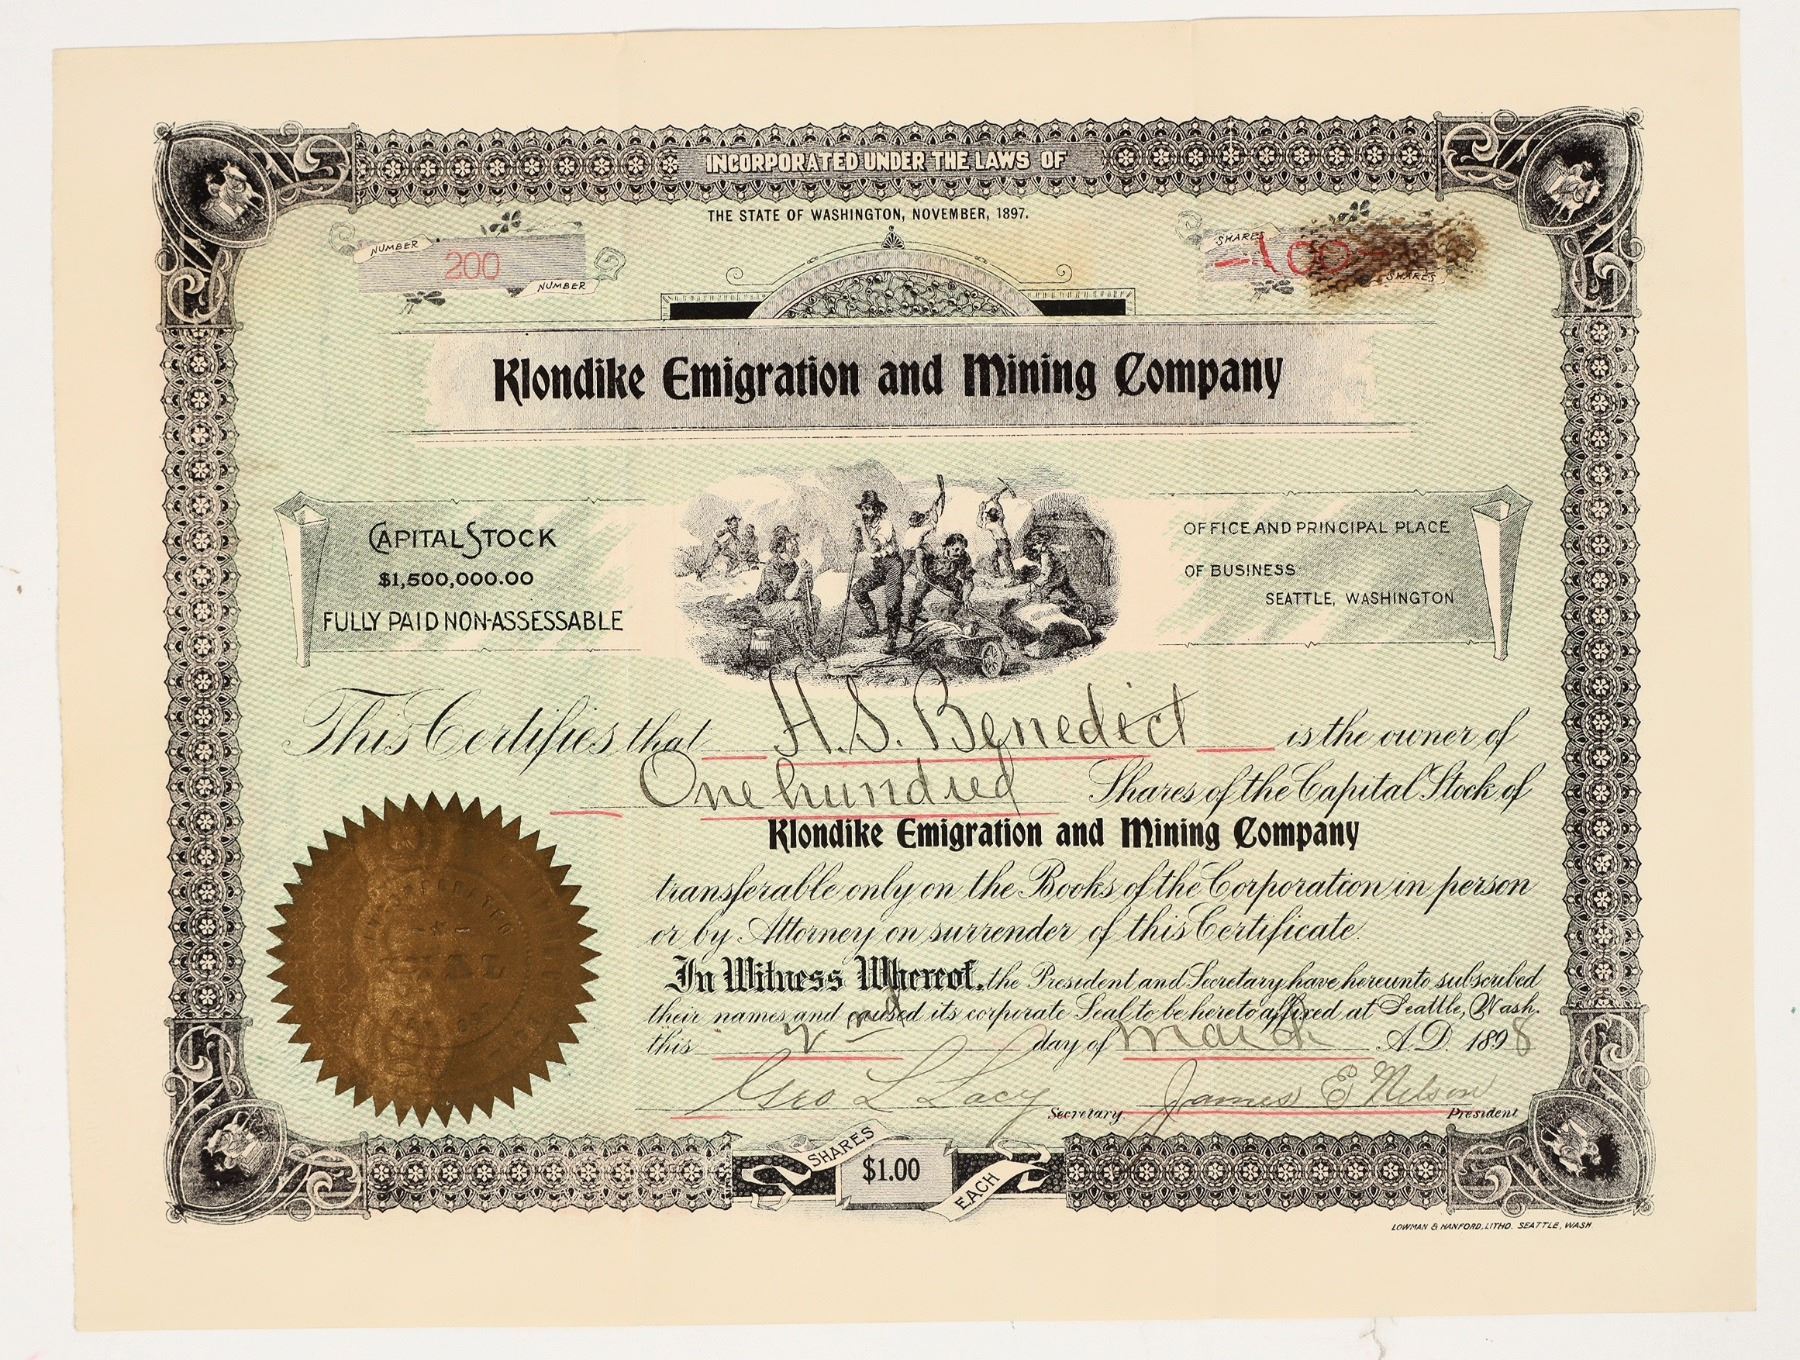 INCORPORATED UNDER THE LAWS OF
THE STATE OF WASHINGTON, NOVEMBER, 1897.
NUMBER
200
NUMBER
SHARES
-100-
SHARES
Klondike Emigration and Mining Company
CAPITAL STOCK
$1,500,000.00
FULLY PAID NON-ASSESSABLE
OFFICE AND PRINCIPAL PLACE
OF BUSINESS
SEATTLE, WASHINGTON
This Certifies that H. S. Benedict is the owner of
One hundred Shares of the Capital Stock of
Klondike Emigration and Mining Company
transferable only on the Books of the Corporation in person
or by Attorney on surrender of this Certificate.
In Witness Whereof, the President and Secretary have hereunto subscribed
their names and caused its corporate Seal to be hereto affixed at Seattle, Wash.
this 2nd day of March A.D. 1898
Geo L Lacy Secretary James E Nelson President
INCORPORATED
SEAL
SHARES
$1.00
EACH
LOWMAN & HANFORD, LITHO. SEATTLE, WASH.